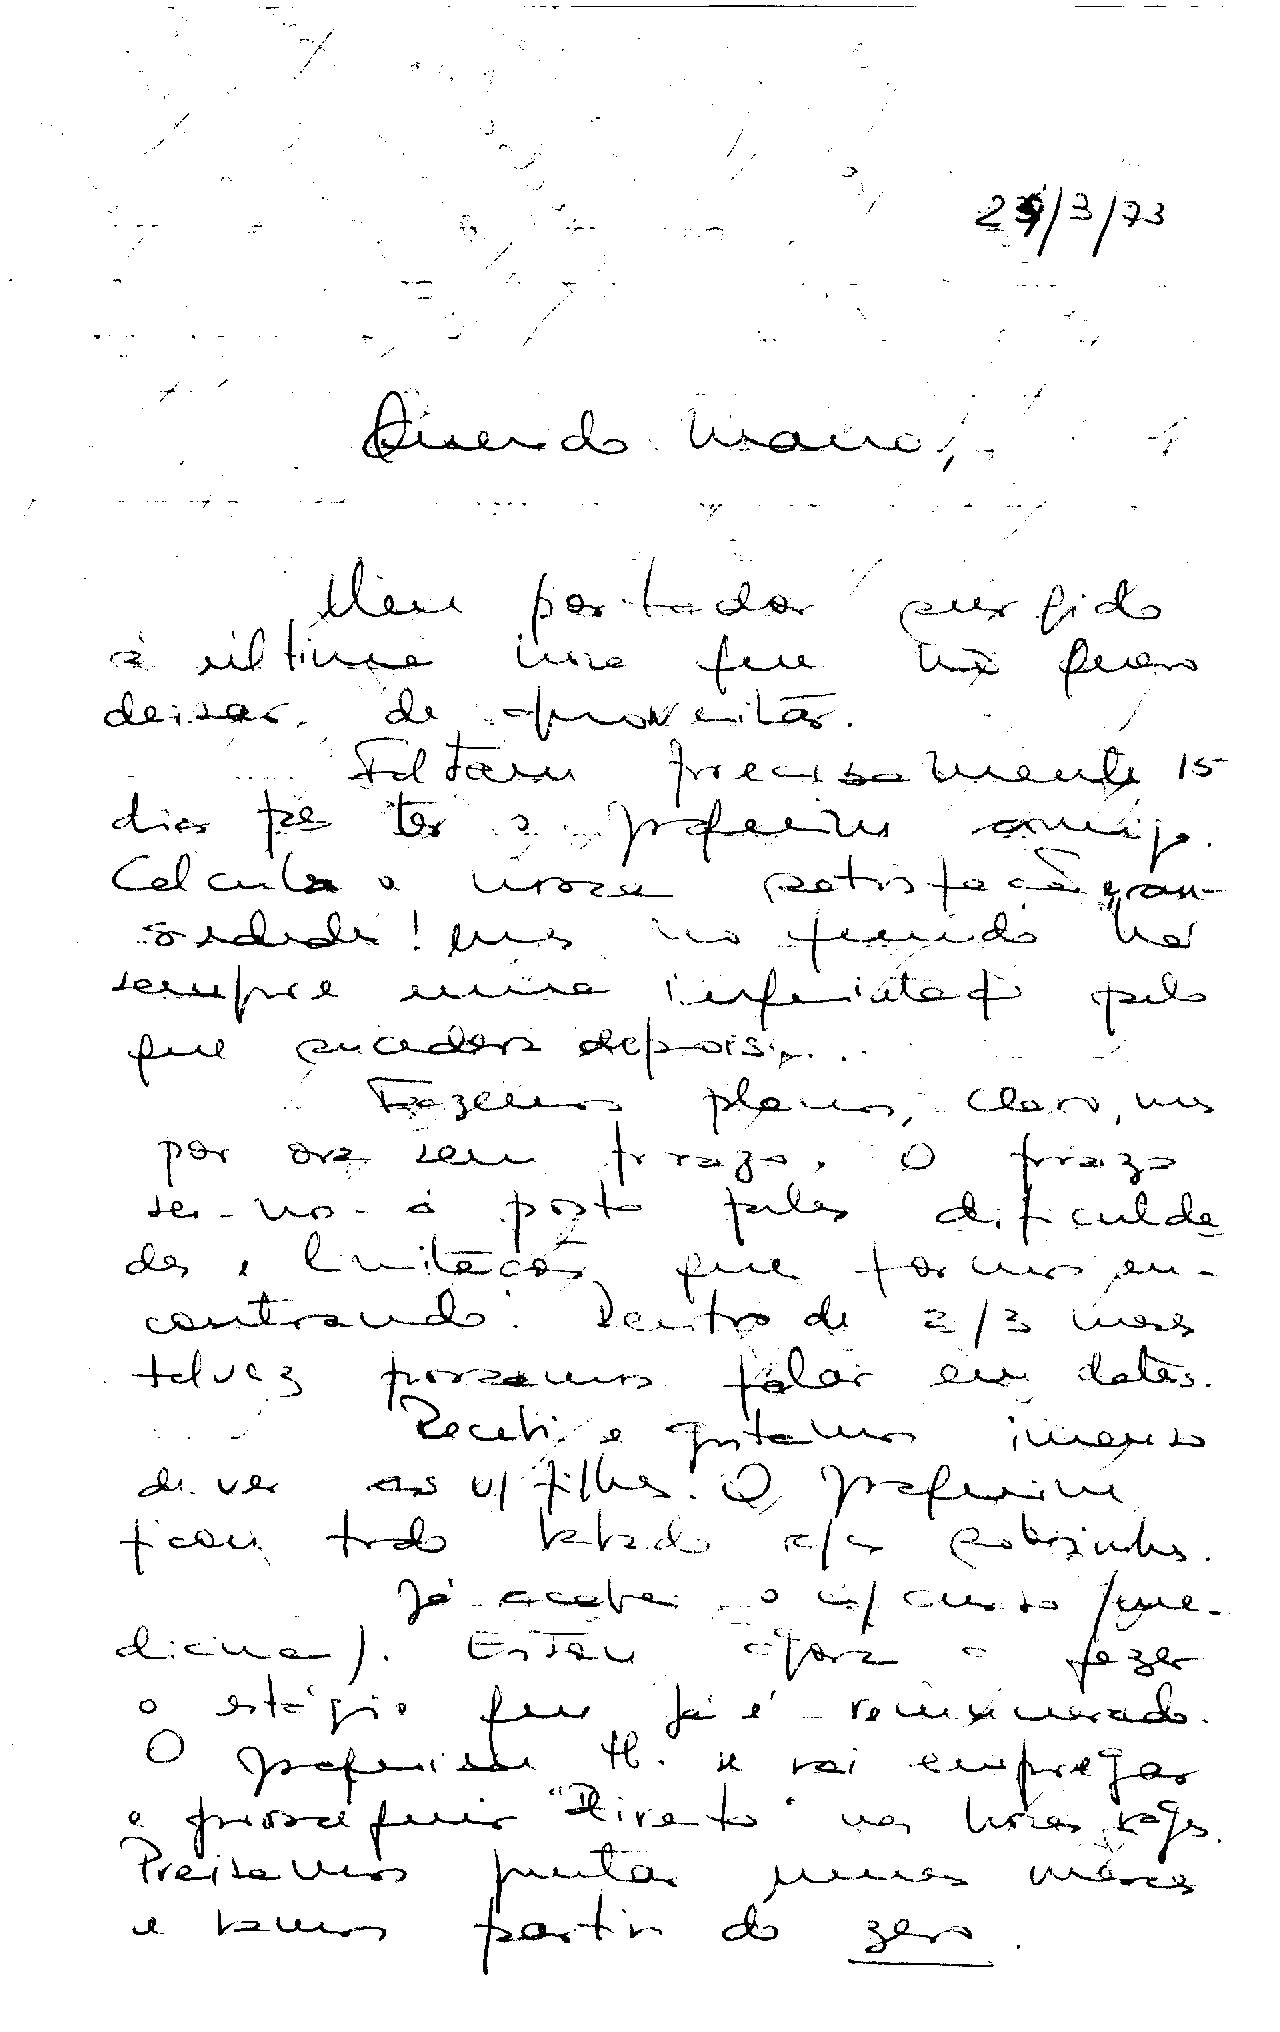 24/3/73
Querido Mário,
Um portador surgido
à última hora que não quero
deixar de aproveitar.
Faltam precisamente 15
dias para ter o Joaquim comigo.
Calcula a nossa satisfação, an-
siedade! mas no fundo há
sempre uma inquietação pelo
que sucederá depois...
Fazemos planos, claro, mas
por ora sem prazo. O prazo
ser-nos-á posto pelas dificulda
des e limitações que formos en-
contrando. Dentro de 2/3 meses
talvez possamos falar em datas.
Recebi e gostamos imenso
de ver as v/ filhas. O Joaquim
ficou todo babado c/ as sobrinhas.
Já acabei o m/ curso (me-
dicina). Estou agora a fazer
o estágio que já é remunerado.
O Joaquim tb. se vai empregar
e prosseguir "Direito" nas horas vagas.
Precisamos juntar umas massas
e vamos partir do zero.